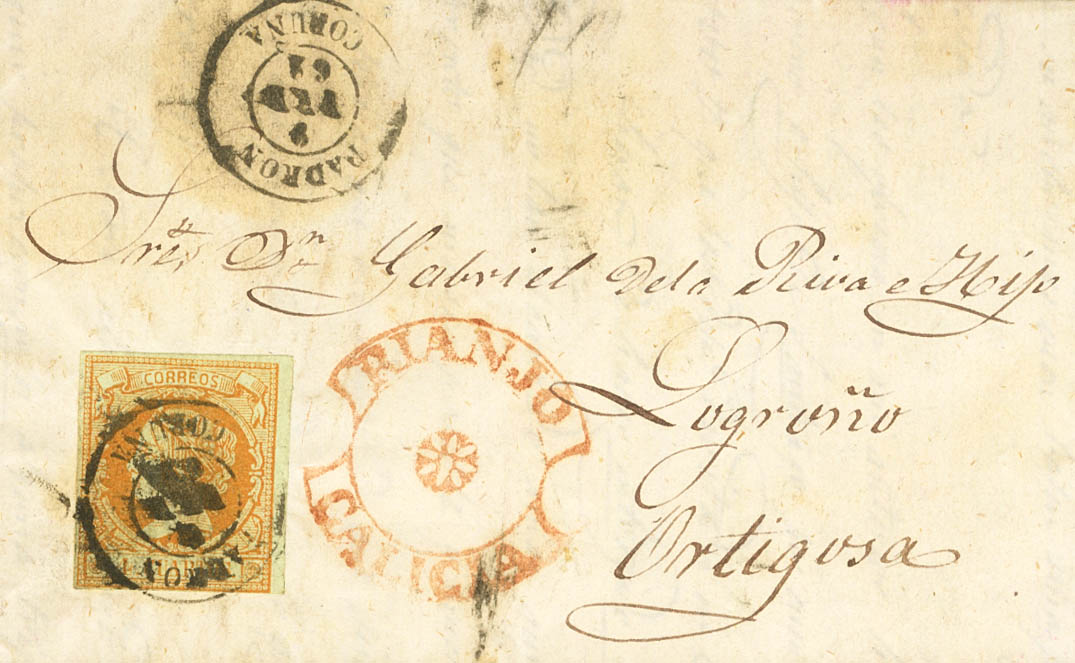 PADRON
9
62
CORUÑA
Sres. Dn. Gabriel de la Riva e Hijo
RIANJO
CORREOS
Logroño
GALICIA
Ortigosa